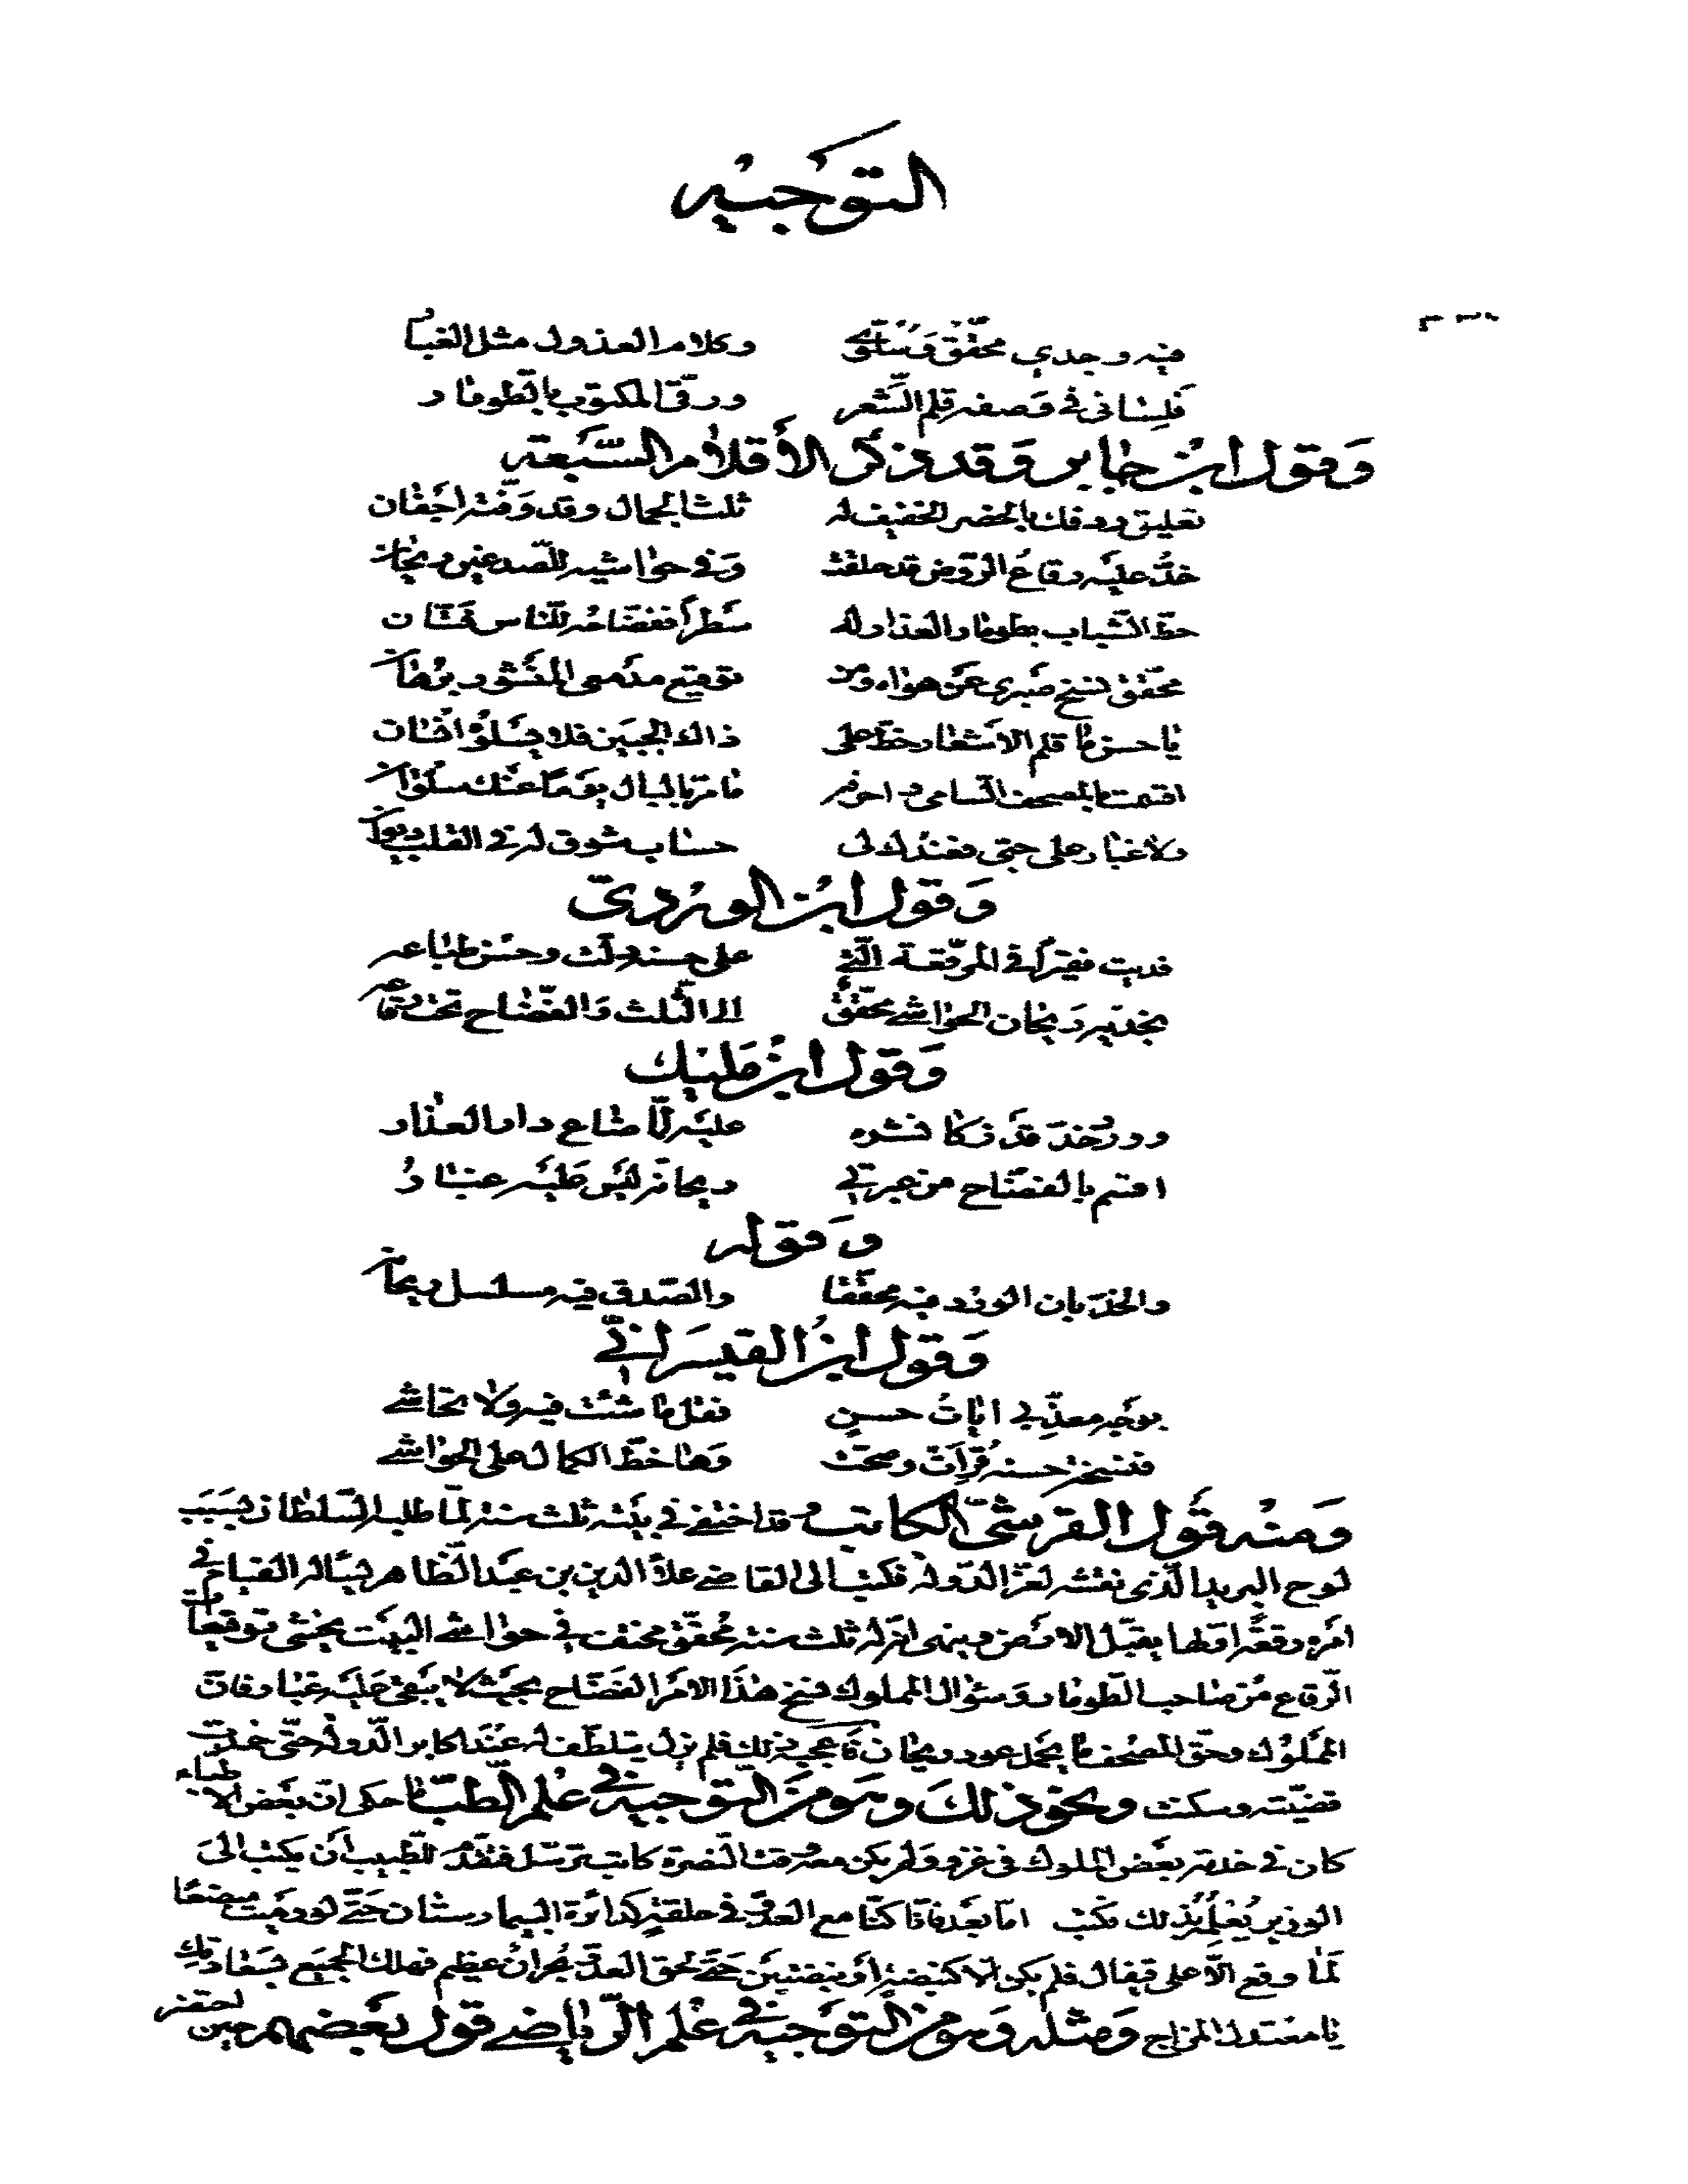 التوجيه
فيه وجدي محقق وسلوّي وكلام العذول مثل الغبار
فلساني في وصفه قلم الشعر ورقّي المكتوب بالطومار
وَقول ابن جابر وَقد ذكر الأقلام السّبعة
تعليق ردفك بالخصر الخفيف له ثلث الجمال وقد وَفّته اجفان
خدٌّ عليه رقاع الروض قد جعلت وَفي حواشيه للصّدغين ريحان
خطّ الشّباب بطومار العذار له سَطراً ففضّاحه للنّاس فتّان
محقّق نسخ صبري عَن هواه ومن توقيع مدمعى المنثور برهان
يا حسن ما قلم الاشعار خطّ على ذاك الجبين فلا يسلوه انسان
اقسمت بالمصحف السامى واحرفه ما مرّ بالبال يومًا عنك سلوان
ولا غبار على حبّى فعندك لى حساب شوق له في القلب ديوان
وَقول ابن الوردي
فديت فقيراً في المرقّعة الّتي على حسنه دلّت وحسن طباعه
بخدّيه ريحان الحواشي محقّقٌ الى الثّلث وَالفضّاح تحت رقاعه
وَقول ابن مليك
وورد خدّ قد زكا نشره عليه لمّا ضاع دار العذار
اقسم بالفضّاح من عبرتي ريحانه ليس عليه غبارُ
وَقوله
والخدّ بان الورد فيه محققا والصّدق فيه مسلسل ريحانه
وَقول ابن القيسرانيّ
بوجه معذّبي اياتُ حسنٍ فقل ما شئت فيه ولا تحاشي
فنسخة حسنه قُرأت وصحّت وَها خطّ الكمال على الحواشي
وَمنه قول القرشىّ الكاتب وقد اختفى في بيته ثلث سنة لمّا طلبه السّلطان بسَبَب
لوح البريد الّذى نقشه لعزّ الدّولة فكتب الى القاضي علاء الدين بن عبد الظاهر يسأله القيام في
امره رقعة اوّلها يقبّل الارض وينهى انّه له ثلث سنة محقّق مختف في حواشي البيت يخشى توقيعات
الرّقاع من صاحب الطّومار وَسؤال المملوك نسخ هذا الامر الفضّاح بحيث لا يبقى عليه غبار فان
المملوك وحقّ المصحف ما يحمل عود ريحان فاعجبه ذلك فلم يزل يتلطّف له عند اكابر الدّولة حتّى خمدت
قضيّته وسكنت ونحو ذلك وهو من التوجيه في علم الطّبّ ما حكى انّ بعض الاطباء
كان في خدمة بعض الملوك فى غزوه ولم يكن معه وقت النّصرة كاتب ترسّل فتقدّم للطّبيب أن يكتب الى
الوزير يُعْلِمه بذلك فكتب امّا بعد فانا كنّا مع العدوّ في حلقة كدائرة البيمارستان حتّى لو رميت مبضعًا
لمّا وقع الّا على قيفال فلم يكن الّا كنبضة أو نبضتين حتّى لحق العدوّ بحرانٌ عظيم فهلك الجميع بسعادتك
يا معتدل المزاج وَمثله وَهو من التوجيه في علم الرّياضي قول بعضهم حين احتضر